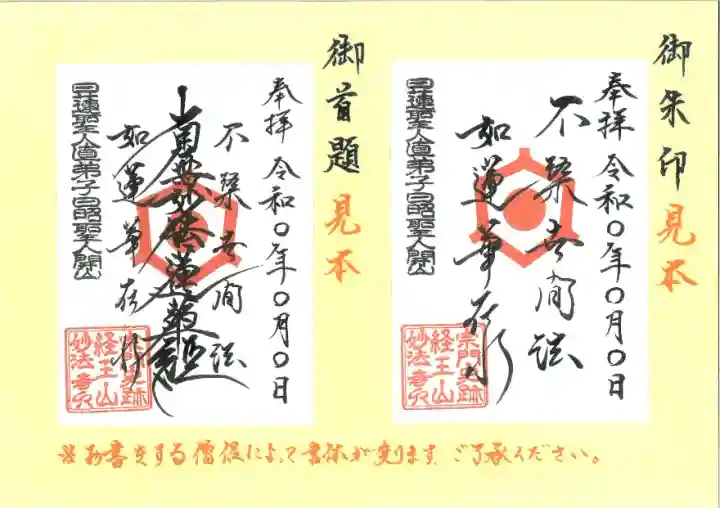 御朱印見本
奉拝 令和〇年〇月〇日
不染世間法
如蓮華在水
日蓮聖人直弟子日昭聖人開山
宗門史跡
経王山
妙法華寺
御首題見本
奉拝 令和〇年〇月〇日
不染世間法
南無妙法蓮華経
如蓮華在水
日蓮聖人直弟子日昭聖人開山
宗門史跡
経王山
妙法華寺
※お書きする僧侶によって書体が変ります ご了承ください。